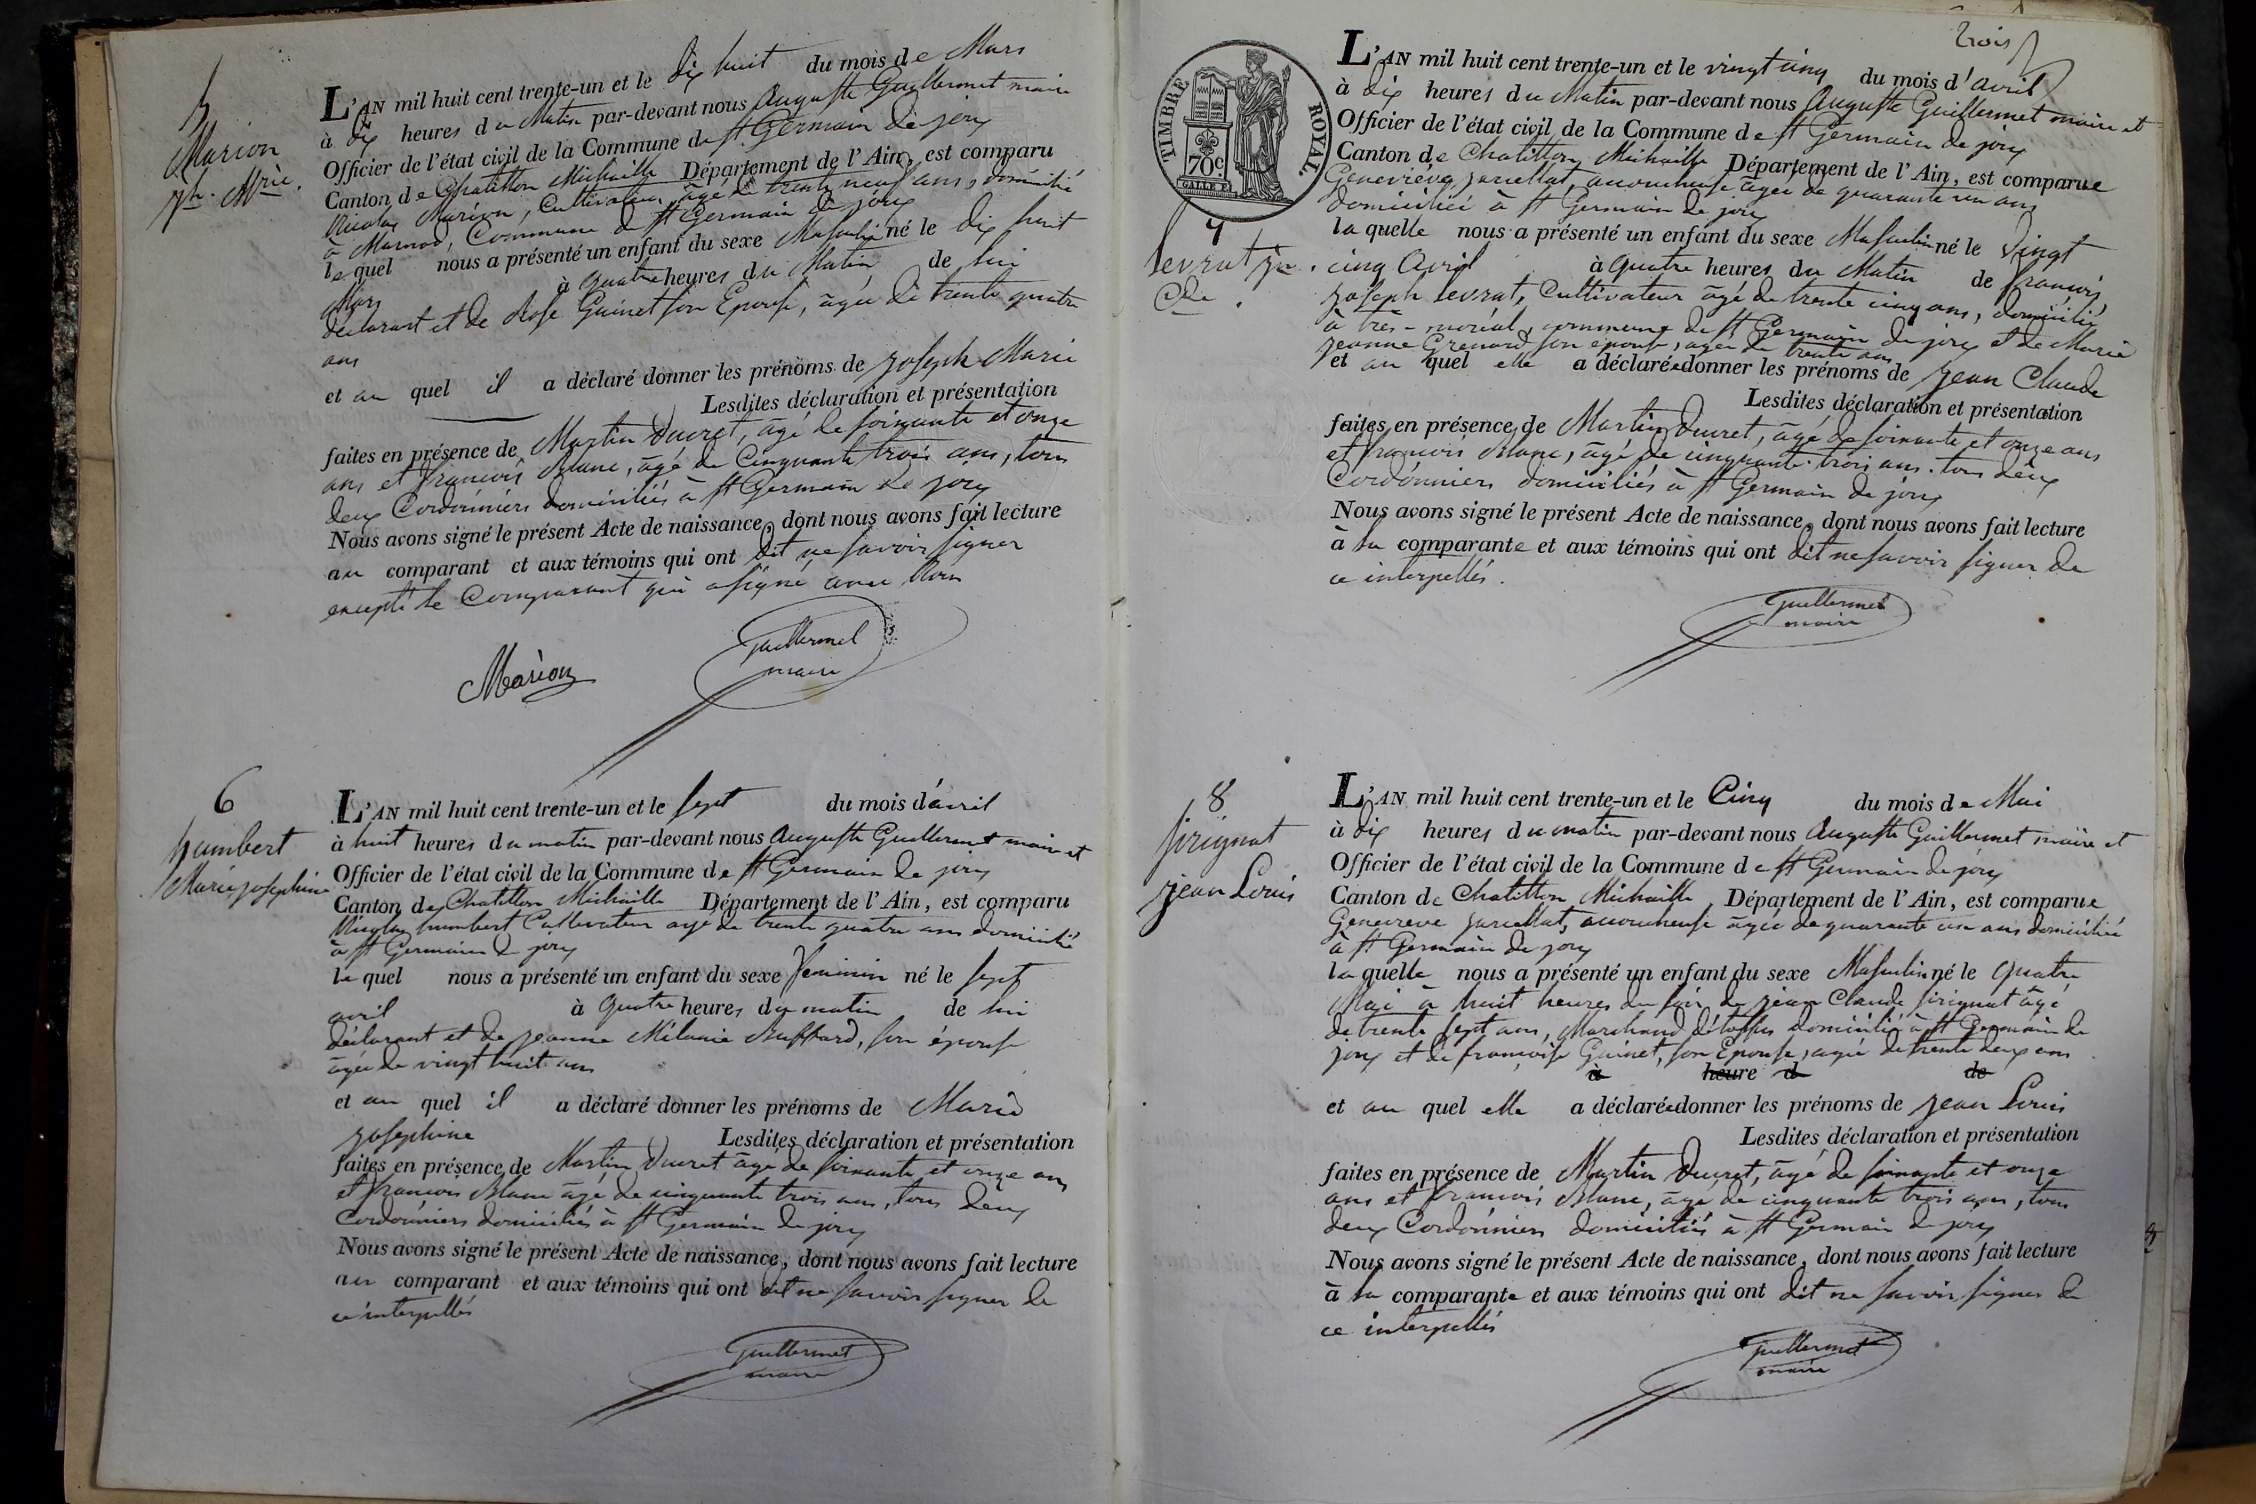 5
Marion
Jh. Mrie.
L'AN mil huit cent trente-un et le dix huit du mois de Mars
à dix heures du Matin par-devant nous Auguste Guillermet maire
Officier de l'état civil de la Commune de St Germain de joux
Canton de Chatillon Michaille Département de l'Ain, est comparu
Nicolas Marion, Cultivateur, âgé de trente neuf ans, domicilié
à Marnod, Commune de St Germain de joux
le quel nous a présenté un enfant du sexe Masculin né le dix huit
Mars à quatre heures du Matin de lui
déclarant et de Rose Guinet son Epouse, âgée de trente quatre
ans
et au quel il a déclaré donner les prénoms de joseph Marie
Lesdites déclaration et présentation
faites en présence de Martin Ducret, âgé de soixante et onze
ans et francois Blanc, âgé de Cinquante trois ans, tous
deux Cordonniers domiciliés à St Germain de joux
Nous avons signé le présent Acte de naissance, dont nous avons fait lecture
au comparant et aux témoins qui ont dit ne savoir signer
excepté le Comparant qui a signé avec Nous
Marion
Guillermet
maire
6
humbert
Marie josephine
L'AN mil huit cent trente-un et le sept du mois d'avril
à huit heures du matin par-devant nous Auguste Guillermet maire et
Officier de l'état civil de la Commune de St Germain de joux
Canton de Chatillon Michaille Département de l'Ain, est comparu
Nicolas humbert Cultivateur agé de trente quatre ans domicilié
à St Germain de joux
le quel nous a présenté un enfant du sexe feminin né le sept
avril à quatre heures du matin de lui
déclarant et de jeanne Mélanie Buffard, son épouse
âgée de vingt huit ans
et au quel il a déclaré donner les prénoms de Marie
josephine Lesdites déclaration et présentation
faites en présence de Martin Ducret âgé de soixante et onze ans
et francois Blanc âgé de cinquante trois ans, tous deux
Cordonniers domiciliés à St Germain de joux
Nous avons signé le présent Acte de naissance, dont nous avons fait lecture
au comparant et aux témoins qui ont dit ne savoir signer de
ce interpellés
Guillermet
maire
trois
TIMBRE ROYAL.
70c.
7
levrat jn.
Cde.
L'AN mil huit cent trente-un et le vingt cinq du mois d'avril
à dix heures du Matin par-devant nous Auguste Guillermet maire et
Officier de l'état civil de la Commune de St Germain de joux
Canton de Chatillon Michaille Département de l'Ain, est comparue
Geneviève jarcellat, accoucheuse âgée de quarante un ans
domiciliée à St Germain de joux
la quelle nous a présenté un enfant du sexe Masculin né le vingt
cinq Avril à quatre heures du Matin de francois
joseph levrat, Cultivateur âgé de trente cinq ans, domicilié
à très-moréal, commune de St Germain de joux et de Marie
jeanne Grenard son épouse, agée de trente ans
et au quel elle a déclarée donner les prénoms de jean Claude
Lesdites déclaration et présentation
faites en présence de Martin Ducret, âgé de soixante et onze ans
et francois Blanc, âgé de cinquante trois ans. tous deux
Cordonniers domiciliés à St Germain de joux
Nous avons signé le présent Acte de naissance, dont nous avons fait lecture
à la comparante et aux témoins qui ont dit ne savoir signer de
ce interpellés.
Guillermet
maire
8
sirignat
jean Louis
L'AN mil huit cent trente-un et le Cinq du mois de Mai
à dix heures du matin par-devant nous Auguste Guillermet maire et
Officier de l'état civil de la Commune de St Germain de joux
Canton de Chatillon Michaille, Département de l'Ain, est comparue
Genevieve jarcellat, accoucheuse âgée de quarante un ans domiciliée
à St Germain de joux
la quelle nous a présenté un enfant du sexe Masculin né le quatre
Mai à huit heures du soir de jean Claude sirignat âgé
de trente sept ans, Marchand d'étoffes domicilié à St Germain de
joux et de françoise Guinet, son Epouse, agée de trente deux ans
à heure d de
et au quel elle a déclarée donner les prénoms de jean Louis
Lesdites déclaration et présentation
faites en présence de Martin Ducret, âgé de soixante et onze
ans et francois Blanc, âgé de cinquante trois ans, tous
deux Cordonniers domiciliés à St Germain de joux
Nous avons signé le présent Acte de naissance, dont nous avons fait lecture
à la comparante et aux témoins qui ont dit ne savoir signer de
ce interpellés
Guillermet
maire